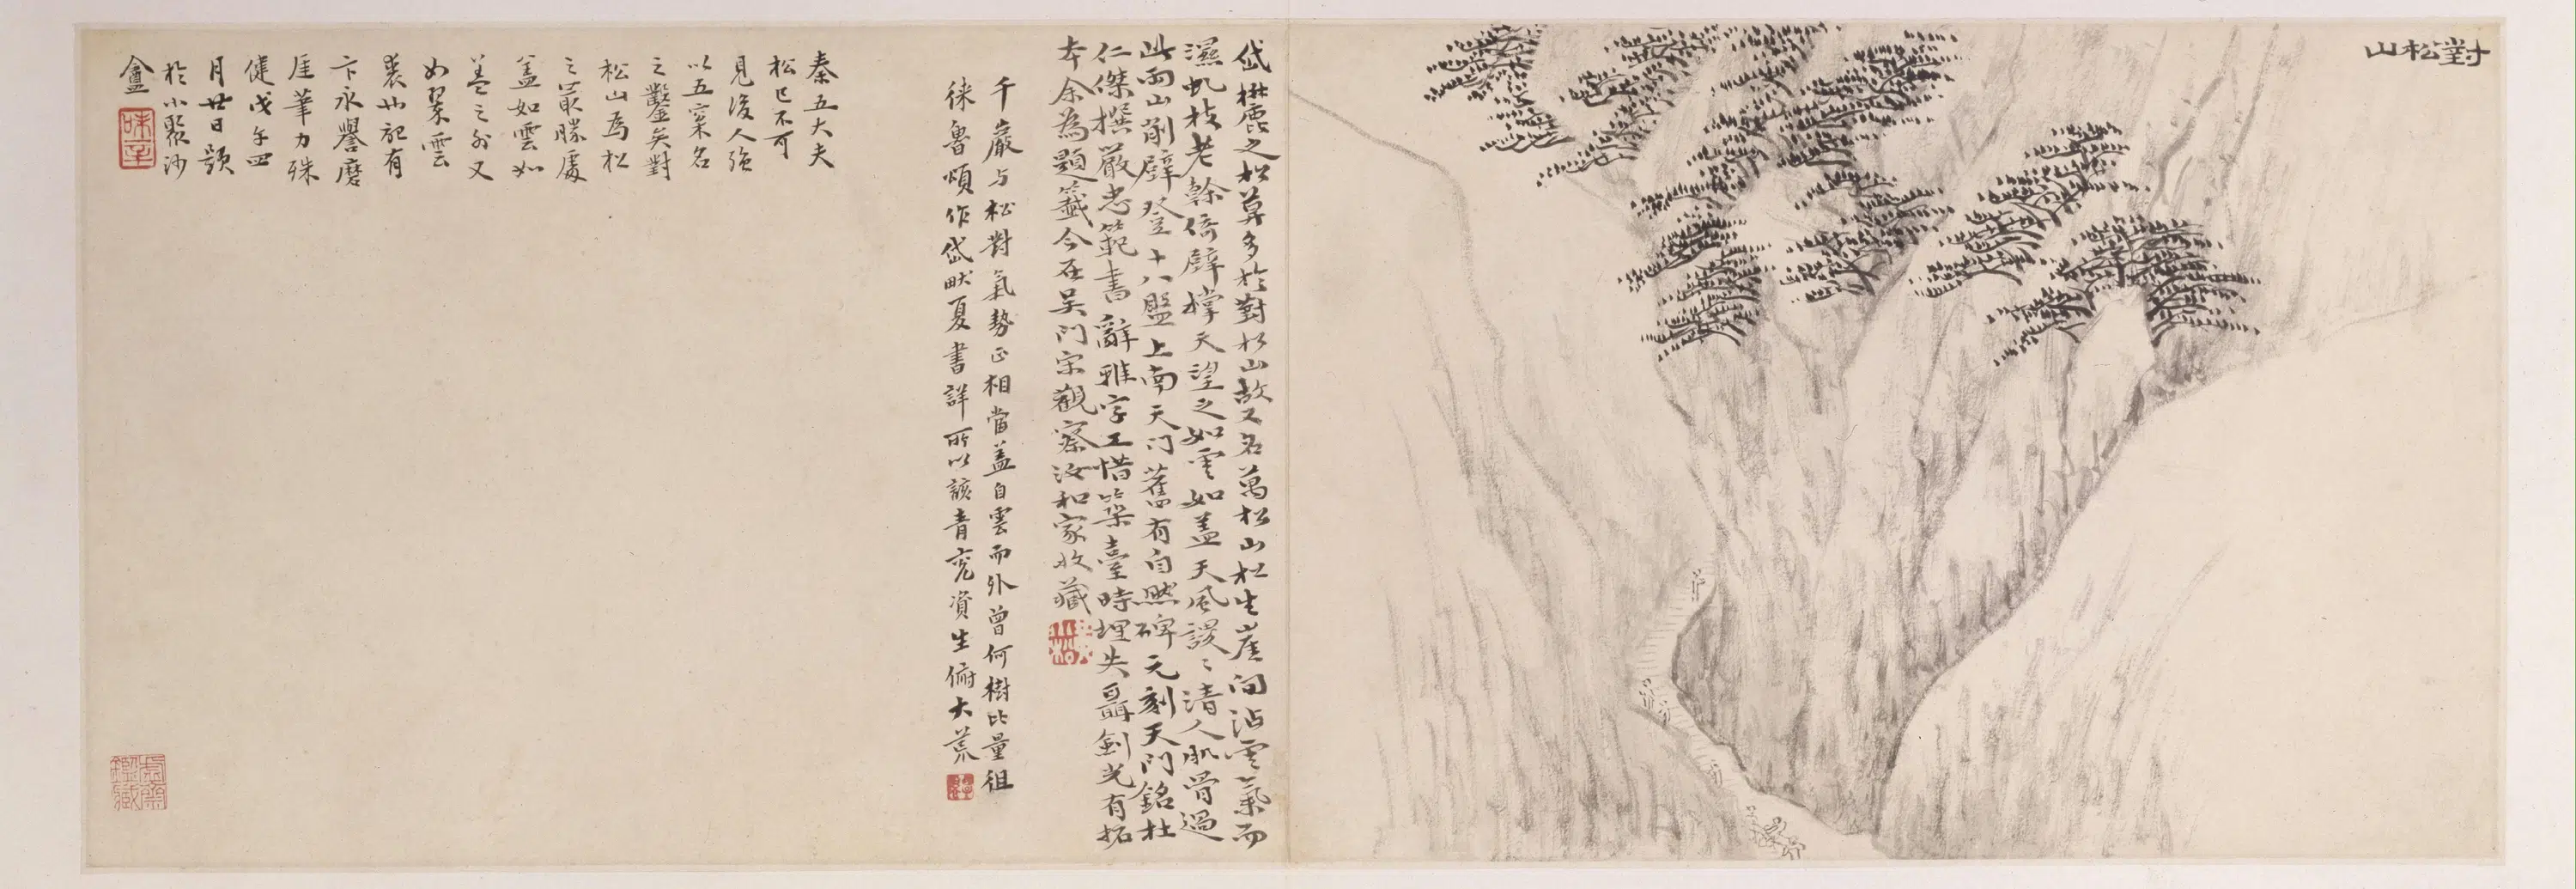 對松山
岱麓之松莫多於對松山故又名萬松山松生崖間沾雲氣而
濕虬枝老榦倚壁撐天望之如雲如蓋天風謖〻清人肌骨過
此兩山削壁登十八盤上南天門舊有自然碑元刻天門銘杜
仁傑撰嚴忠範書辭雅字工惜築臺時埋失聶劍光有拓
本余為題籤今在吳門宋觀察汝和家收藏
千巖与松對氣勢正相當蓋自雲而外曾何樹比量徂
徠魯頌作岱畎夏書詳所以該青兗資生俯大荒
秦五大夫
松已不可
見後人強
以五名
之鑿矣對
松山為松
之最勝處
蓋如雲如
蓋之外又
如翠雲
裘記有
卞永譽磨
厓筆力殊
健戊午四
月廿日題
於小聚沙
龕
味辛
虛齋鑑藏